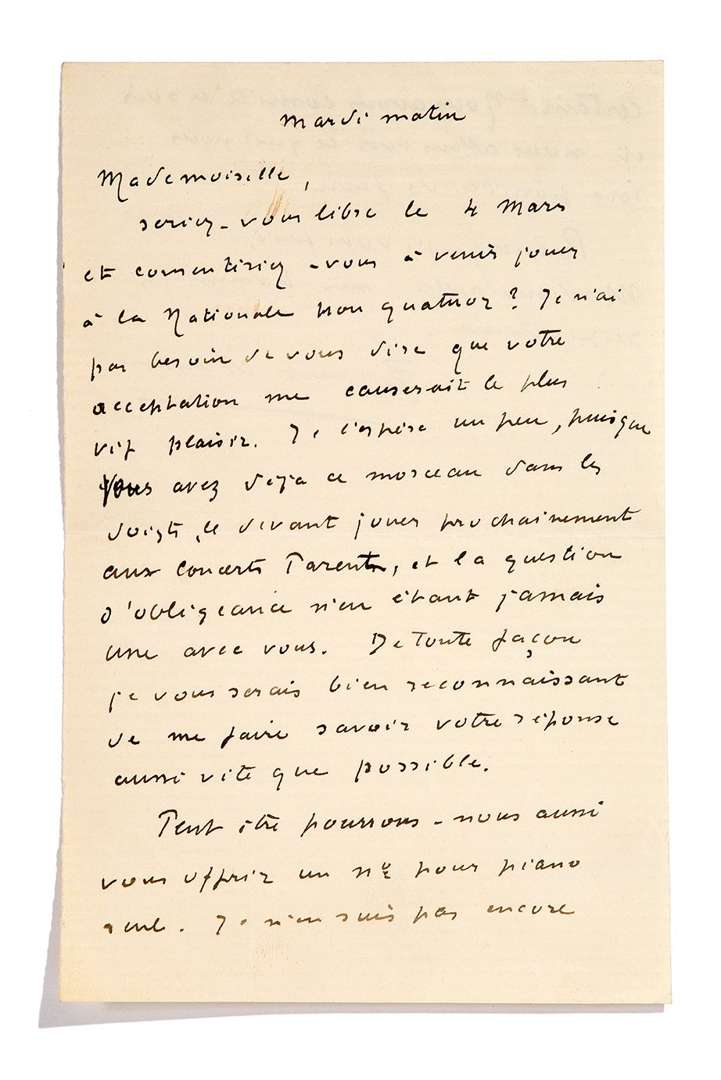 mardi matin
Mademoiselle,
seriez-vous libre le 4 Mars
et consentiriez-vous à venir jouer
à la Nationale mon quatuor ? Je n'ai
pas besoin de vous dire que votre
acceptation me causerait le plus
vif plaisir. Je l'espère un peu, puisque
vous avez déjà ce morceau dans les
doigts, le devant jouer prochainement
aux Concerts Parent, et la question
d'obligeance n'en étant jamais
une avec vous. De toute façon
je vous serais bien reconnaissant
de me faire savoir votre réponse
aussi vite que possible.
Peut être pourrons-nous aussi
vous offrir un nº pour piano
seul. Je n'en suis pas encore